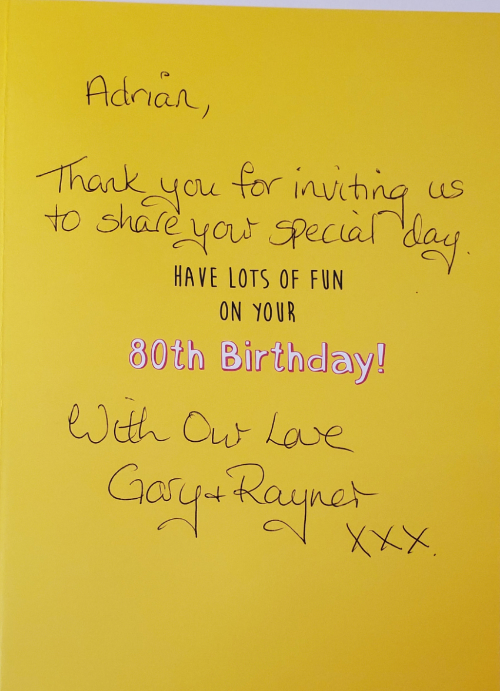 Adrian,
Thank you for inviting us
to share your special day.
HAVE LOTS OF FUN
ON YOUR
80th Birthday!
With Our Love
Gary + Rayner
xxx.